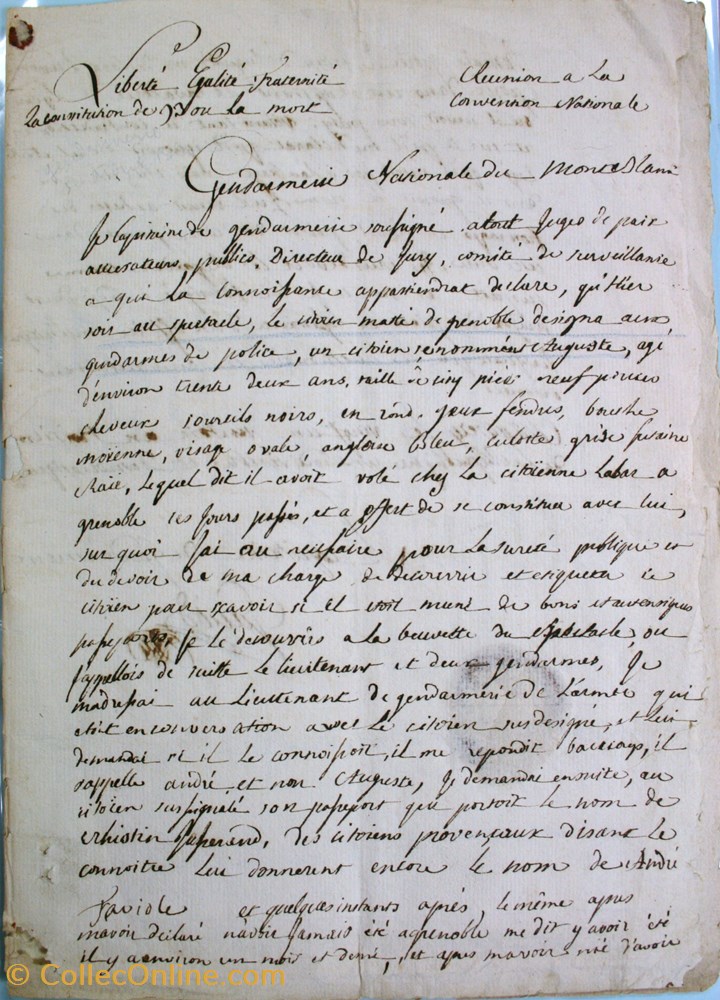 Liberté Egalité Fraternité
La constitution de 93 ou La mort
Reunion a La
Convention Nationale
Gendarmerie Nationale du MontBlanc
Je Capitaine de gendarmerie soussigné a tout Juges de paix
accusateurs publics, Directeur de Jury, comité de surveillance
a qui La Connoissance appartiendrat declare, qu'Hier
soir au spectacle, le citoien matté de grenoble designa aux
gendarmes de police, un citoien renommént Auguste, agé
d'environ trente deux ans, taille de cinq pieds neuf pouces
cheveux soursils noirs, en rond. yeux fendres, bouche
moienne, visage ovale, angloise bleu, culotte grise futaine
Raié, lequel dit il avoit volé chez La citöienne Labar a
grenoble ces Jours passés, et a offert de se constituer avec lui,
sur quoi J'ai cru nécessaire pour La sureté publique et
du devoir de ma charge de decouvrir et
citoien pour scavoir si il etoit muni de bons et autentiques
passeports, Je le découvris a la beuvette du Spectacle, ou
J'appellois de suitte le lieutenant et deux gendarmes, Je
m'adressai au Lieutenant de gendarmerie de L'armée qui
etoit en conversation avec le citoien susdesigné, et Lui
demandai si il le connoissoit, il me repondit beaucoup, il
s'appelle andré et non Auguste, Je demandai ensuite, au
citoien sussignalé son passeport qui portoit le nom de
des citoiens provençaux disant le
connoitre Lui donnerent encore le nom de André
Faviole et quelques instants après, le même apres
m'avoir déclaré n'avoir Jamais été a grenoble me dit y avoir été
il y a environ un mois et demi, et apres m'avoir nié d'avoir
© CollecOnline.com